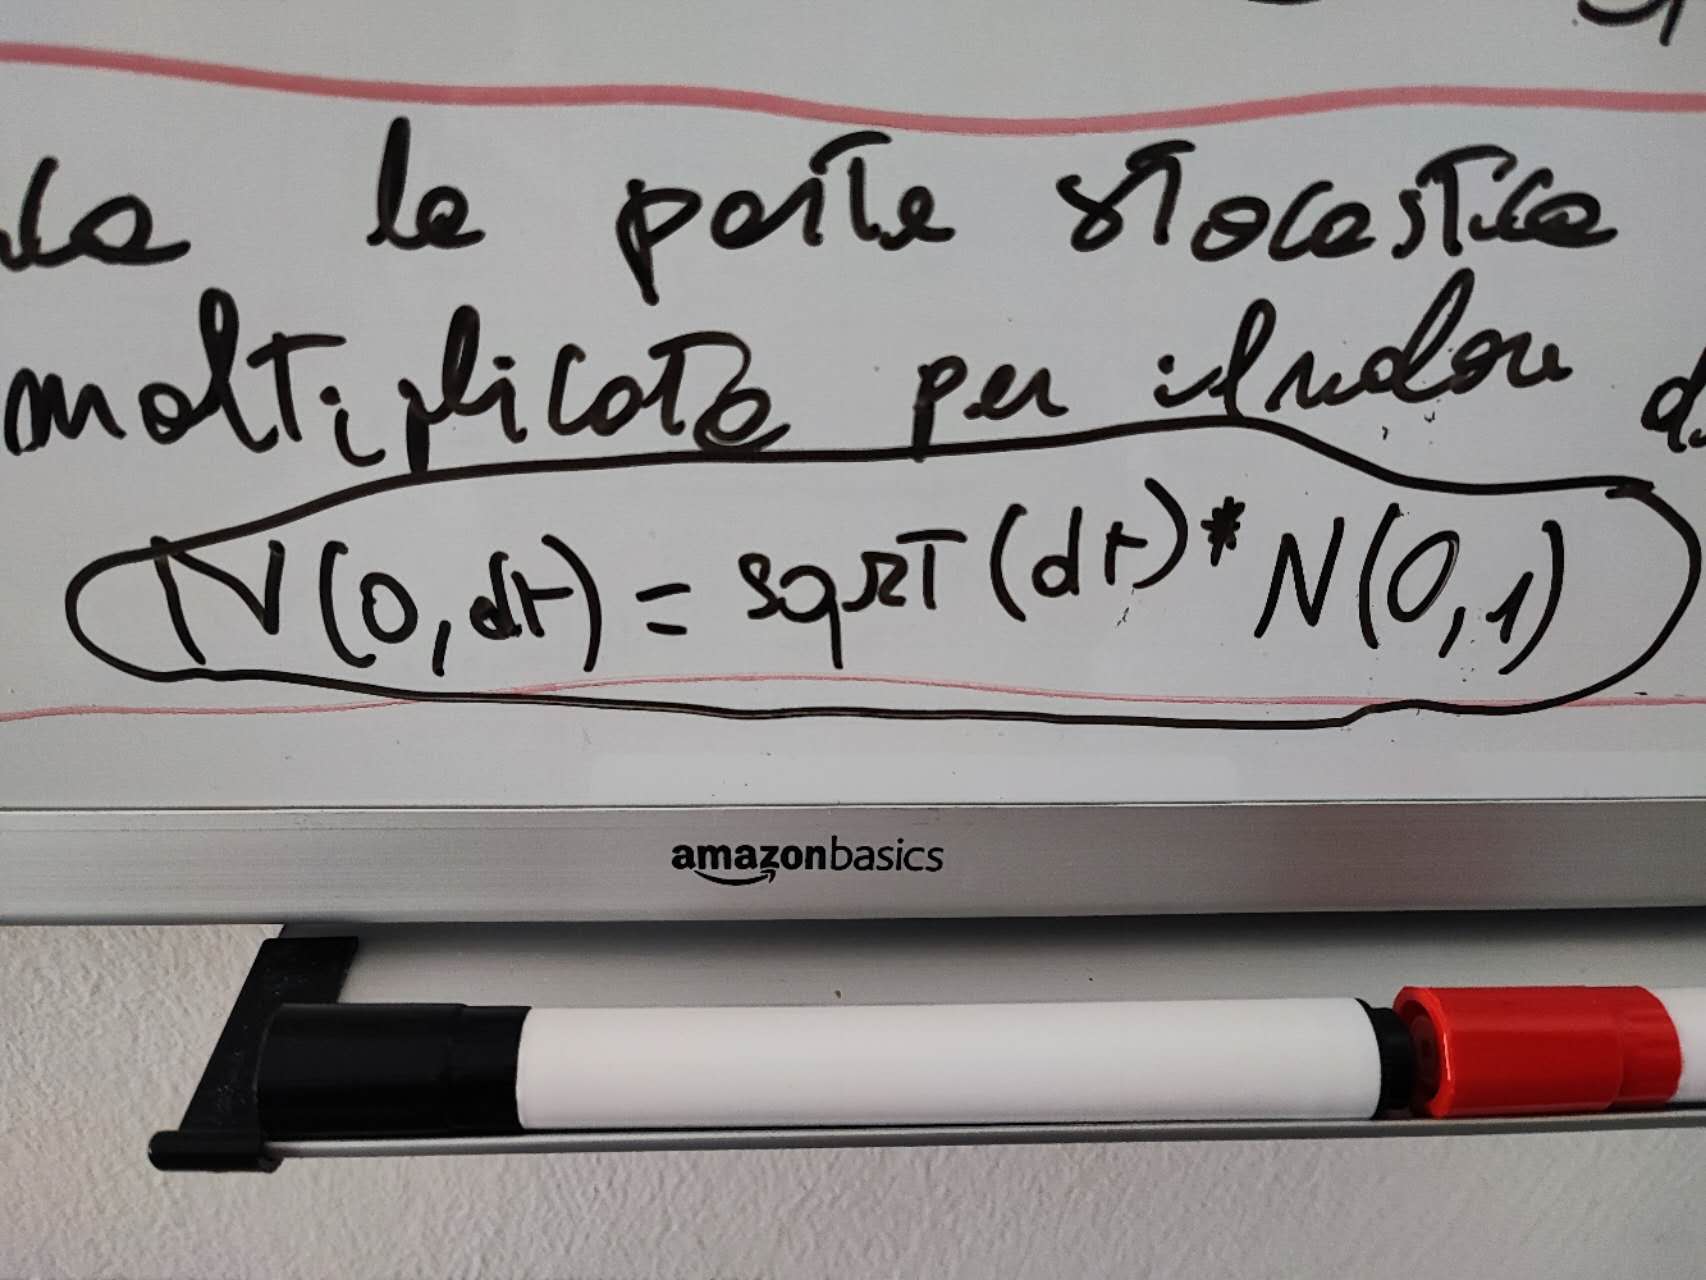 la parte stocastica
moltiplicata per il valore
N(0,dt) = sqrt(dt)* N(0,1)
amazonbasics